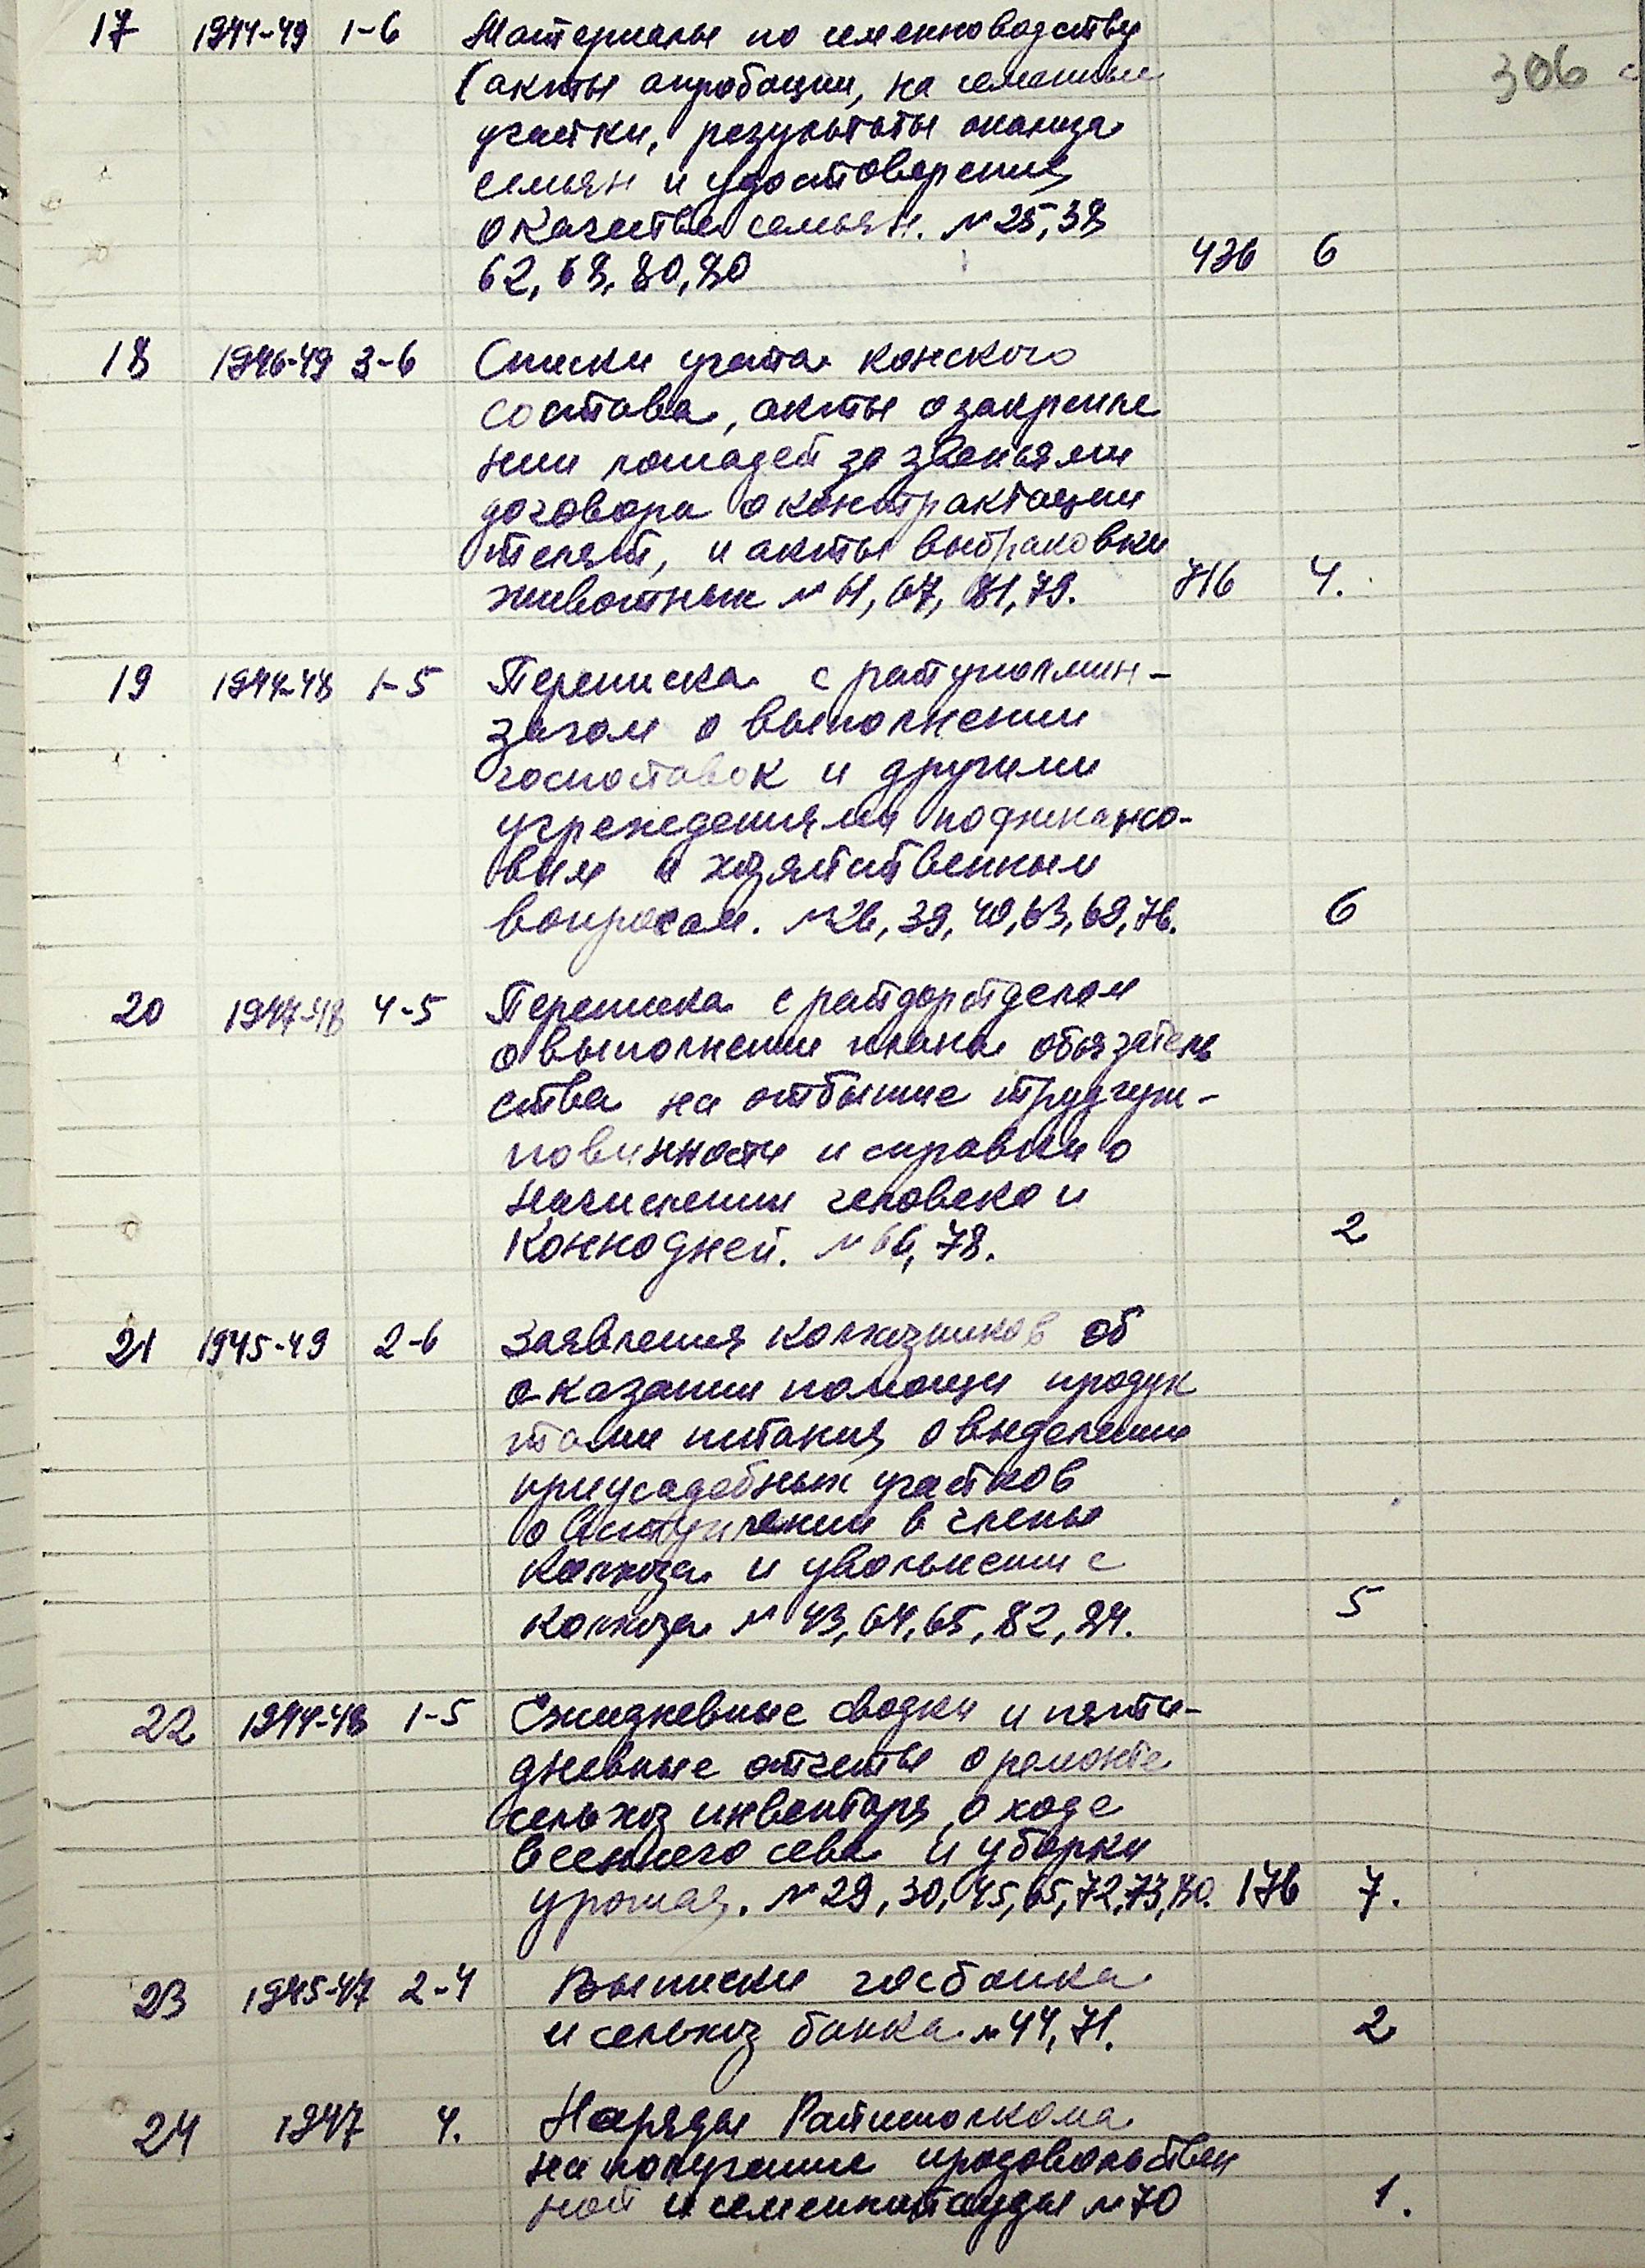 306
17 1944-49 1-6 Материалы по семеноводству
(акты апробации, на семенные
участки, результаты анализа
семян и удостоверения
о качестве семян. № 25, 38
62, 68, 80, 80 436 6
18 1946-49 3-6 Списки учета конского
состава, акты о закрепле
нии лошадей за звеньями
договора о контрактации
телят, и акты выбраковки
животных № 41, 67, 81, 79. 716 4.
19 1944-48 1-5 Переписка с райуполмин-
загом о выполнении
госпоставок и другими
учреждениями по финансо-
вым и хозяйственным
вопросам. № 26, 39, 40, 63, 69, 76. 6
20 1947-48 4-5 Переписка с райдоротделом
о выполнении плана обязатель
ства на отбытие трудгуж-
повинности и справки о
начислении человеко и
конно дней. № 66, 78. 2
21 1945-49 2-6 Заявления колхозников об
оказании помощи продук
тами питания, о выделении
приусадебных участков
о вступлении в члены
колхоза и увольнении с
колхоза № 43, 64, 65, 82, 84. 5
22 1944-48 1-5 Ежедневные сводки и пяти-
дневные отчеты о ремонте
сельхоз инвентаря, о ходе
весеннего сева и уборки
урожая. № 29, 30, 45, 65, 72, 73, 80. 176 7.
23 1945-47 2-4 Выписки госбанка
и сельхоз банка № 44, 71. 2
24 1947 4. Наряды Райисполкома
на получение продовольствен
ной и семенной ссуды № 70 1.